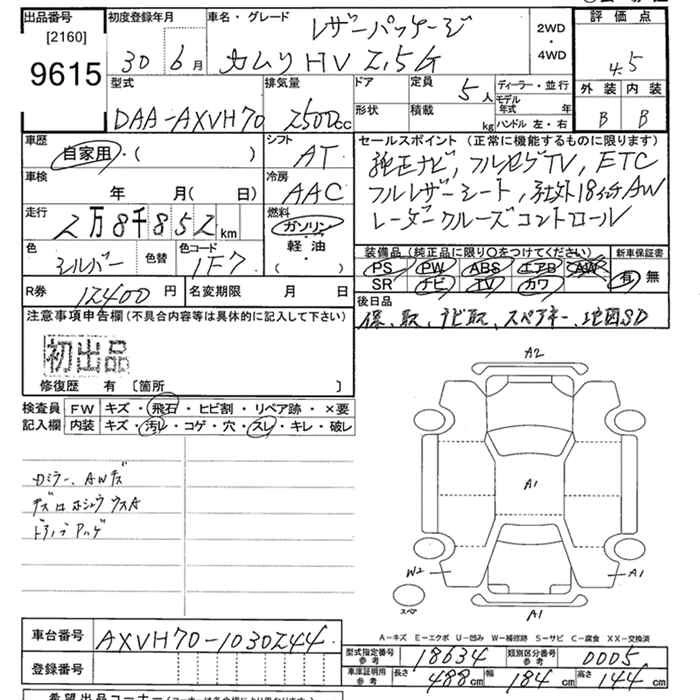 出品番号 初度登録年月 車名・グレード レザーパッケージ 2WD・4WD 評価点
[2160]
9615 30年 6月 カムリHV 2.5G 4.5
型式 排気量 ドア 定員 5人 ディーラー・並行 外装 内装
DAA-AXVH70 2500cc 形状 積載 kg モデル年式 年 B B
ハンドル 左・右
車歴 シフト セールスポイント (正常に機能するものに限ります)
自家用・( ) AT 純正ナビ, フルセグTV, ETC
車検 冷房 フルレザーシート, 社外18インチAW
年 月( 日) AAC レーダークルーズコントロール
走行 燃料
2万8千852km ガソリン・軽油・( )
色 色替 色コード 装備品 (純正品に限り〇をつけてください) 新車保証書
シルバー 1F7 PS PW ABS エアB AW 有 無
SR ナビ TV カワ
R券 12400円 名変期限 月 日 後日品
注意事項申告欄 (不具合内容等は具体的に記入して下さい) 保、取、ナビ取、スペアキー、地図SD
初出品
修復歴 有 〔箇所 〕
検査員 FW キズ・飛石・ヒビ割・リペア跡・×要
記入欄 内装 キズ・汚レ・コゲ・穴・スレ・キレ・破レ
A2
A1
Dミラー、AWキズ
W2 A1
スペア
A1
A-キズ E-エクボ U-凹み W-補修跡 S-サビ C-腐食 XX-交換済
車台番号 AXVH70-1030244
型式指定番号 参考 18634 類別区分番号 参考 0005
登録番号
車庫証明用 参考 長さ 488cm 幅 184cm 高さ 144cm
希望出品コーナー